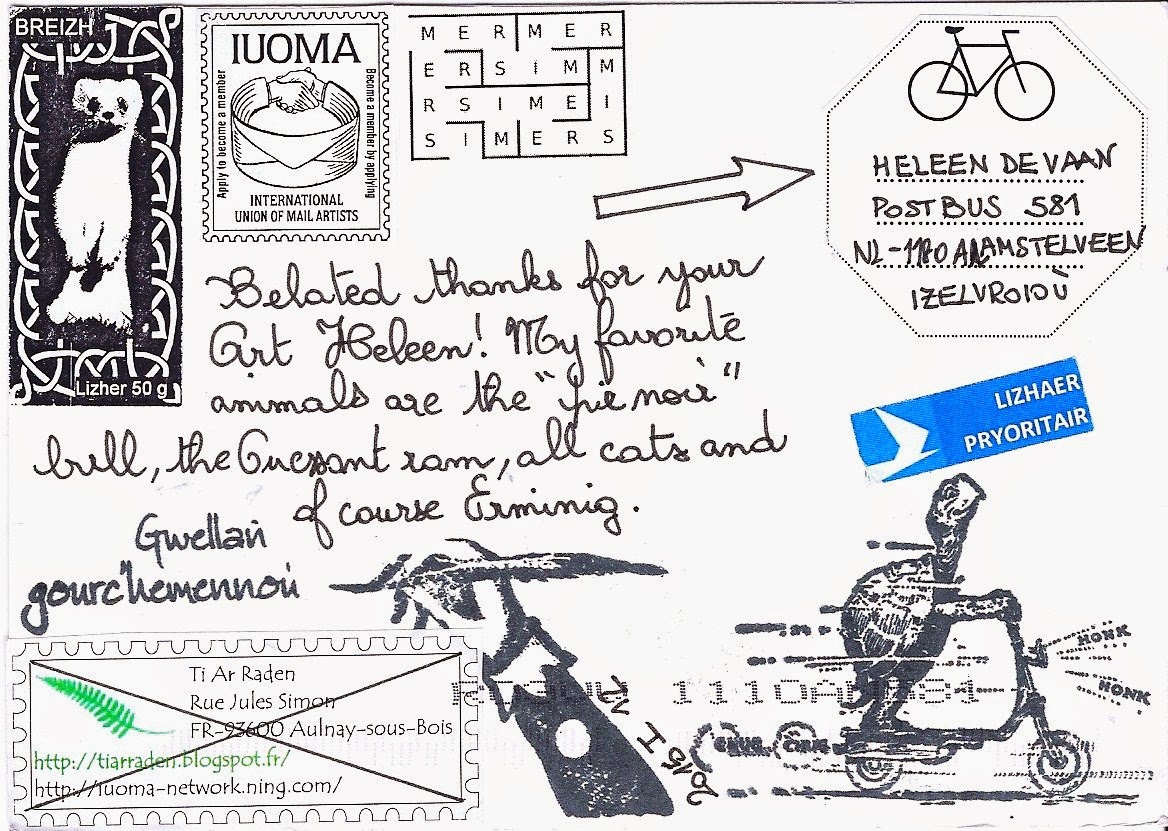 BREIZH
Lizher 50 g
IUOMA
Apply to become a member
Become a member by applying
INTERNATIONAL
UNION OF MAIL ARTISTS
M E R M E R
E R S I M M
R S I M E I
S I M E R S
HELEEN DE VAAN
POSTBUS 581
AMSTELVEEN
IZELVROIOÙ
LIZHAER
PRYORITAIR
Belated thanks for your
Art Heleen! My favorite
animals are the "pie noir"
bull, the Ouessant ram, all cats and
of course Erminig.
Gwellañ
gourc'hemennoù
Ti Ar Raden
Rue Jules Simon
FR-93600 Aulnay-sous-Bois
http://tiarraden.blogspot.fr/
http://iuoma-network.ning.com/
I 2015
CHUG CHUG
HONK
HONK